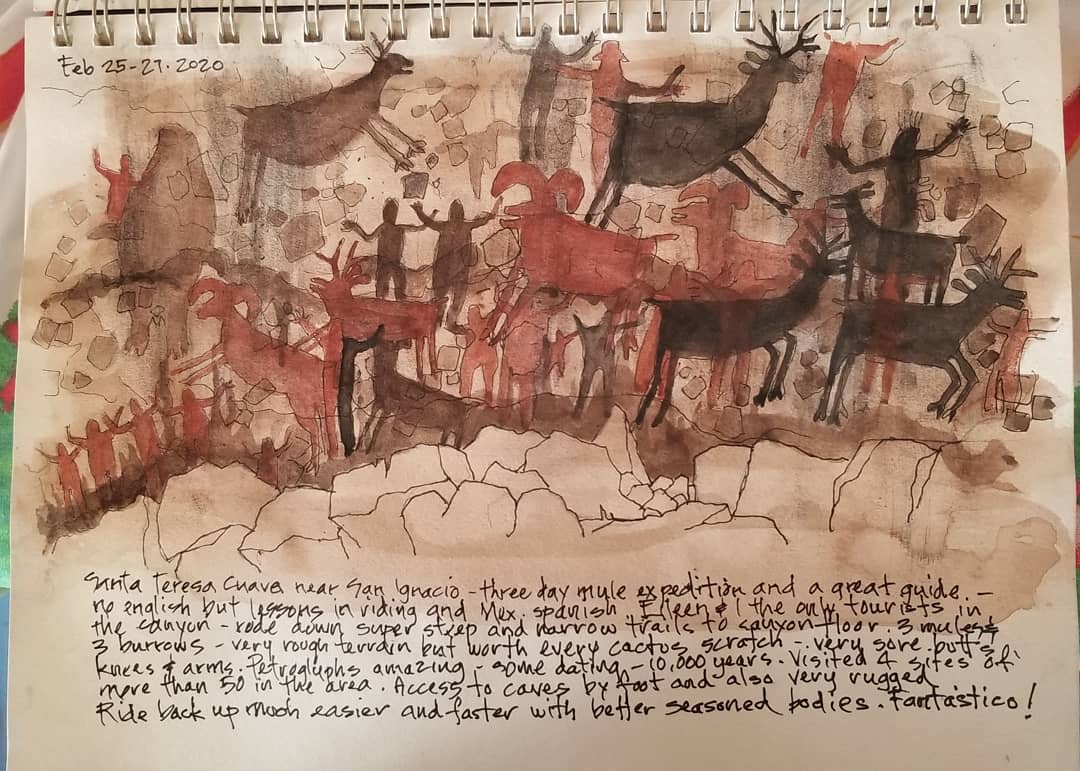 Feb 25-27. 2020
Santa Teresa Cuava near San Ignacio - three day mule expedition and a great guide. -
no english but lessons in riding and Mex. spanish. Eileen & I the only tourists in
the canyon - rode down super steep and narrow trails to canyon floor. 3 mules &
3 burrows - very rough terrain but worth every cactus scratch - very sore butts
knees & arms. Petroglyphs amazing - some dating - 10,000 years. Visited 4 sites of
more than 50 in the area. Access to caves by foot and also very rugged
Ride back up much easier and faster with better seasoned bodies. Fantástico!